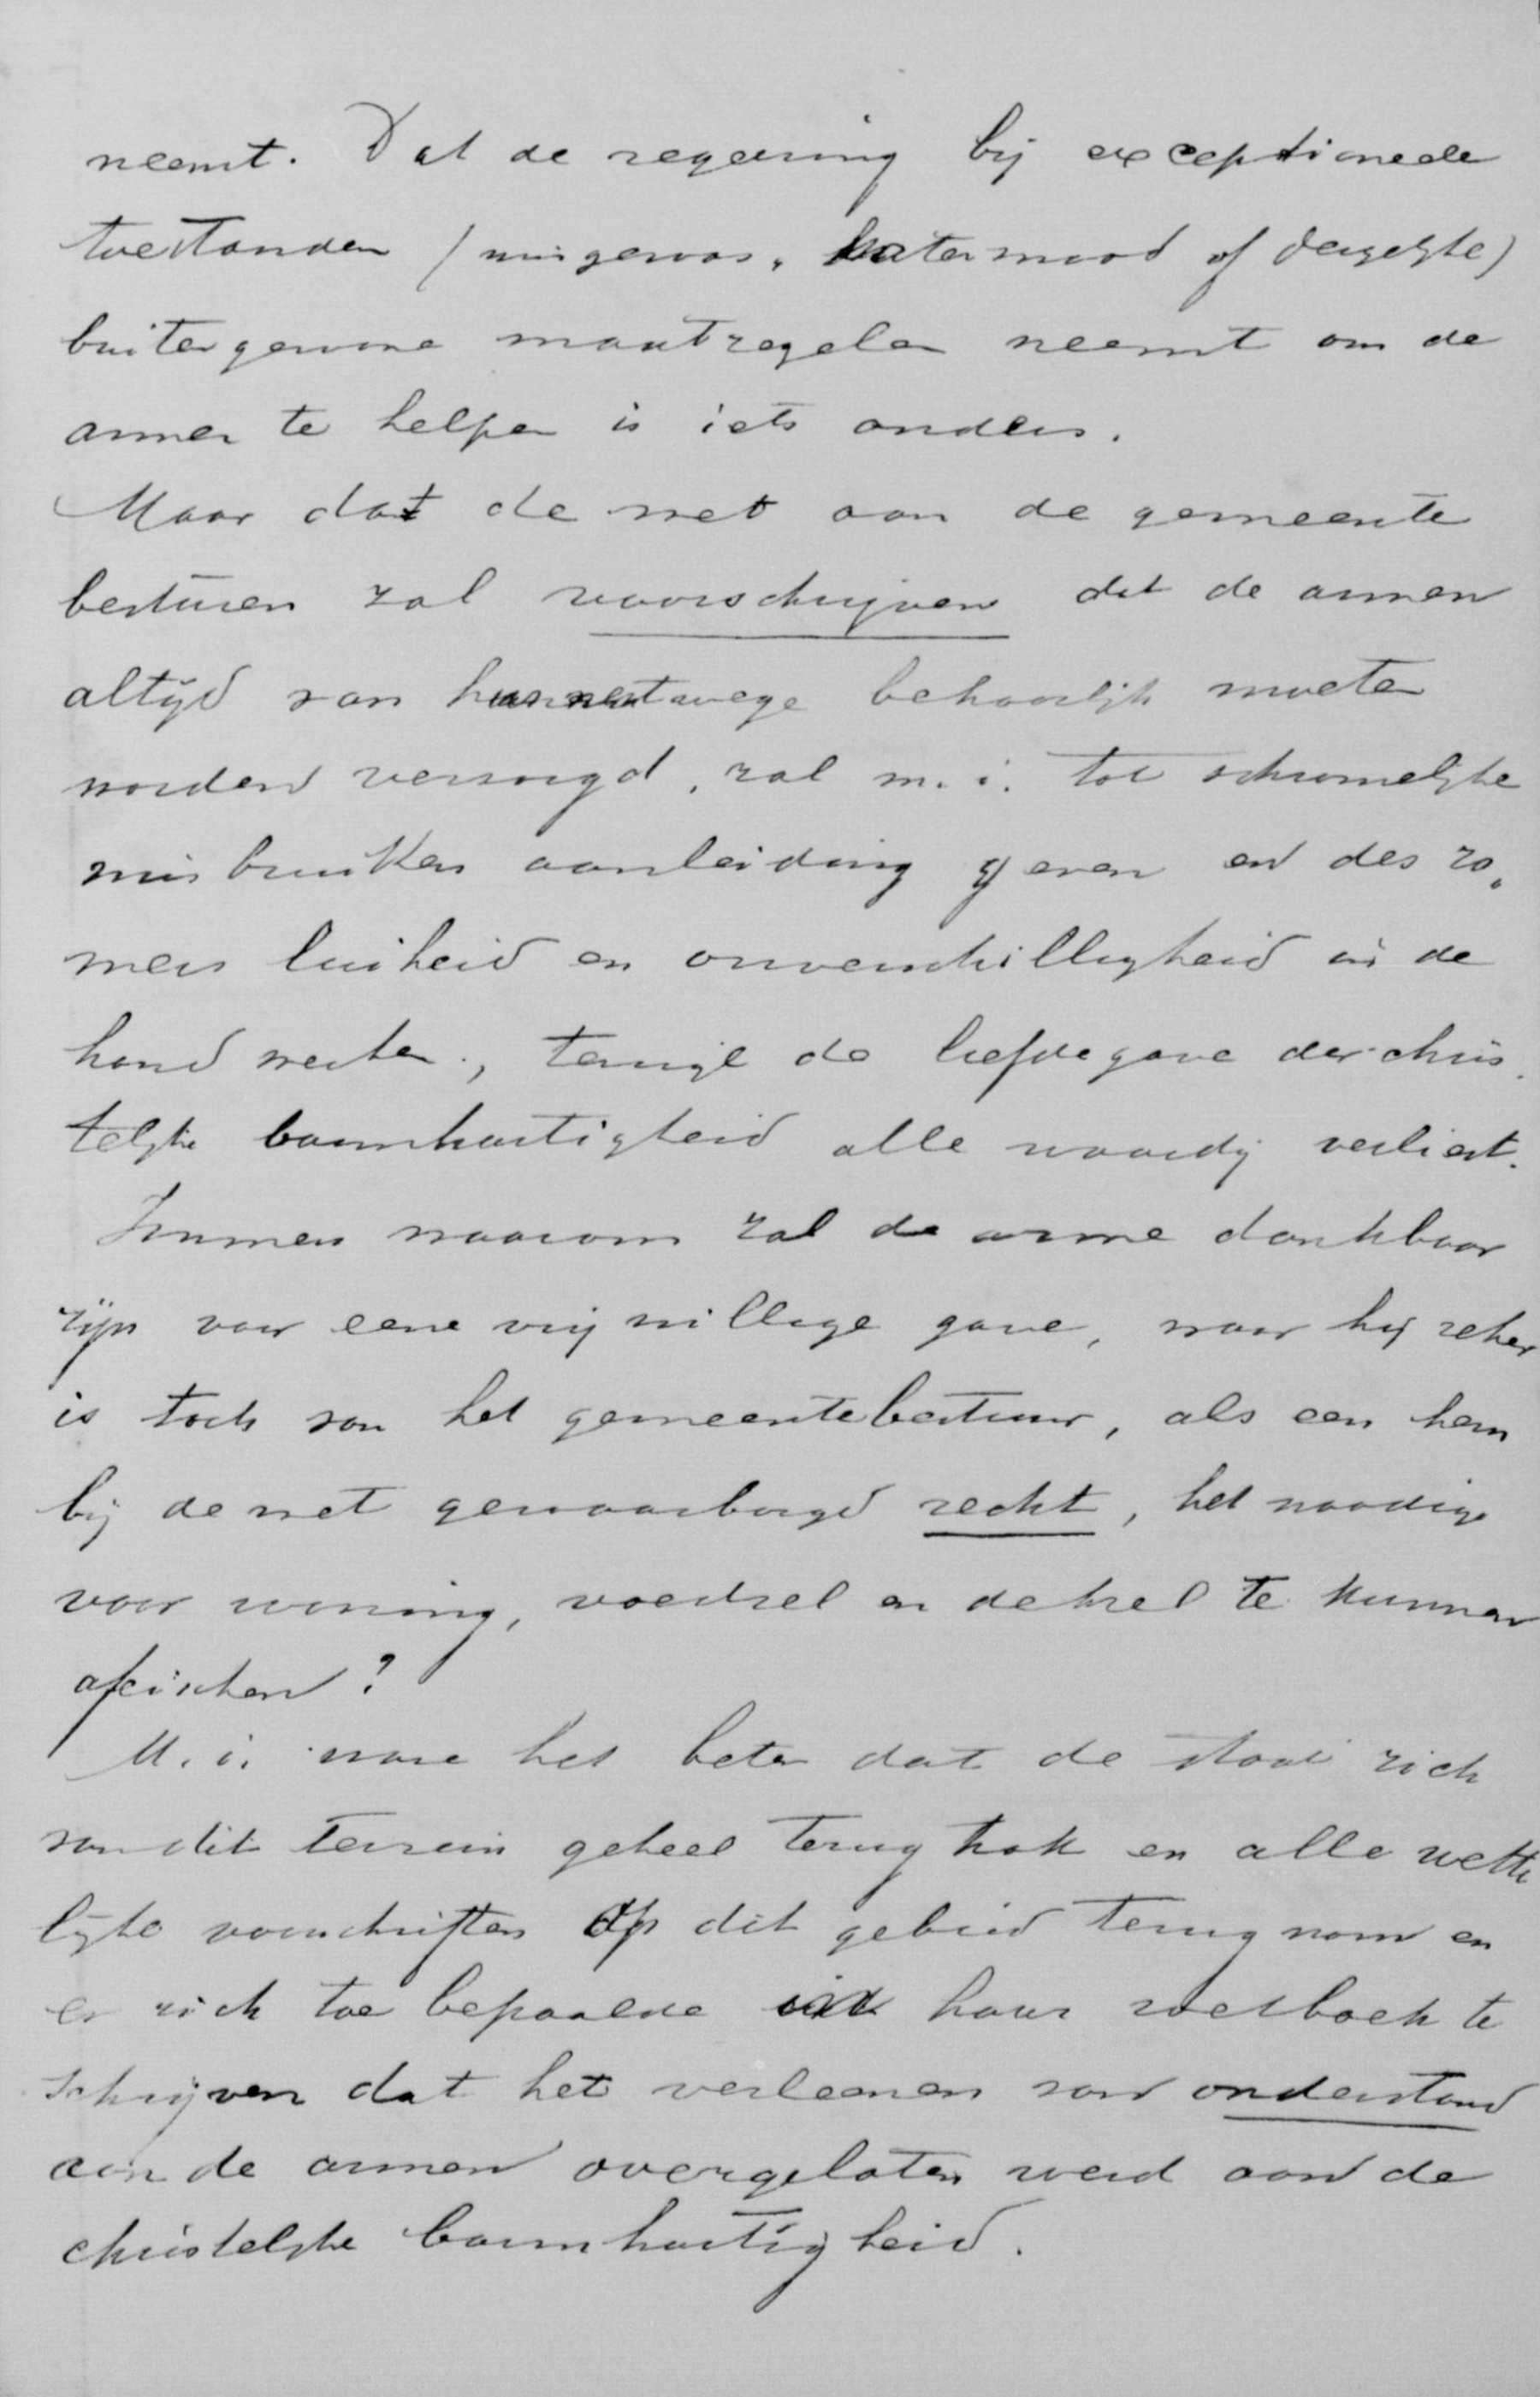 neemt. Dat de regeering bij exceptioneele
toestanden (misgewas, watersnood of dergelijke)
buitengewone maatregelen neemt om de
armen te helpen is iets anders.
Maar dat de wet aan de gemeente
besturen zal voorschrijven dat de armen
altijd van hunnentwege behoorlijk moeten
worden verzorgd, zal m. i. tot schromelijke
misbruiken aanleiding geven en des zo„
mers luiheid en onverschilligheid in de
hand werken, terwijl de liefdegave der chris„
telijke barmhartigheid alle waardij verliest.
Immers waarom zal de arme dankbaar
zijn voor eene vrijwillige gave, waar hij zeker
is toch van het gemeentebestuur, als een hem
bij de wet gewaarborgd recht, het noodige
voor woning, voedsel en deksel te kunnen
afeischen?
M. i. ware het beter dat de staat zich
van dit terrein geheel terug trok en alle wette
lijke voorschriften op dit gebied terug nam en
er zich toe bepaalde in haar wetboek te
schrijven dat het verleenen van onderstand
aan de armen overgelaten werd aan de
christelijke barmhartigheid.